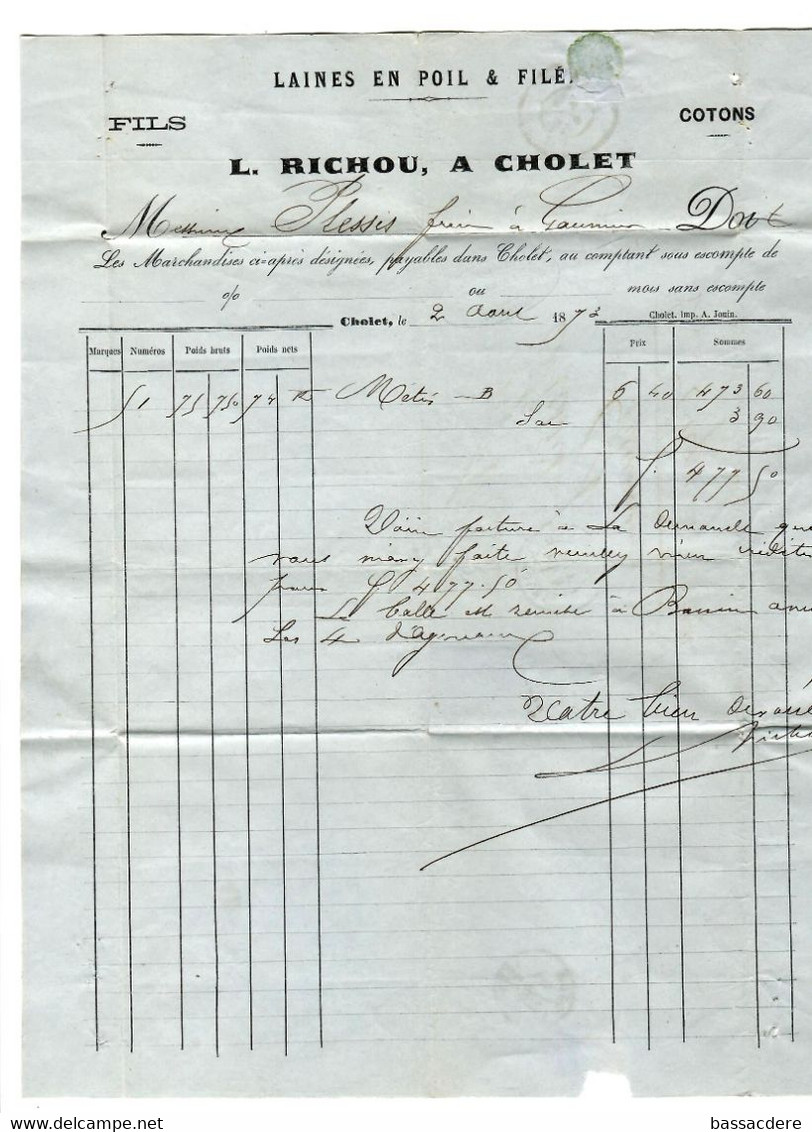 LAINES EN POIL & FILÉ
FILS
COTONS
L. RICHOU, A CHOLET
Messieurs Plessis frères à Doit
Les Marchandises ci=après désignées, payables dans Cholet, au comptant sous escompte de
% ou mois sans escompte
Cholet, le 2 Aout 1873
Cholet. imp. A. Jouin.
Marques Numéros Poids bruts Poids nets Prix Sommes
51 75 750 74 Métis B 6 40 473 60
Sac 3 90
f. 477 50
Voici facture à la demande que
vous m'avez faite veuillez m'en crédit
pour f 477.50
La balle est remise à
Les 4
Votre bien
www.delcampe.net
bassacdere